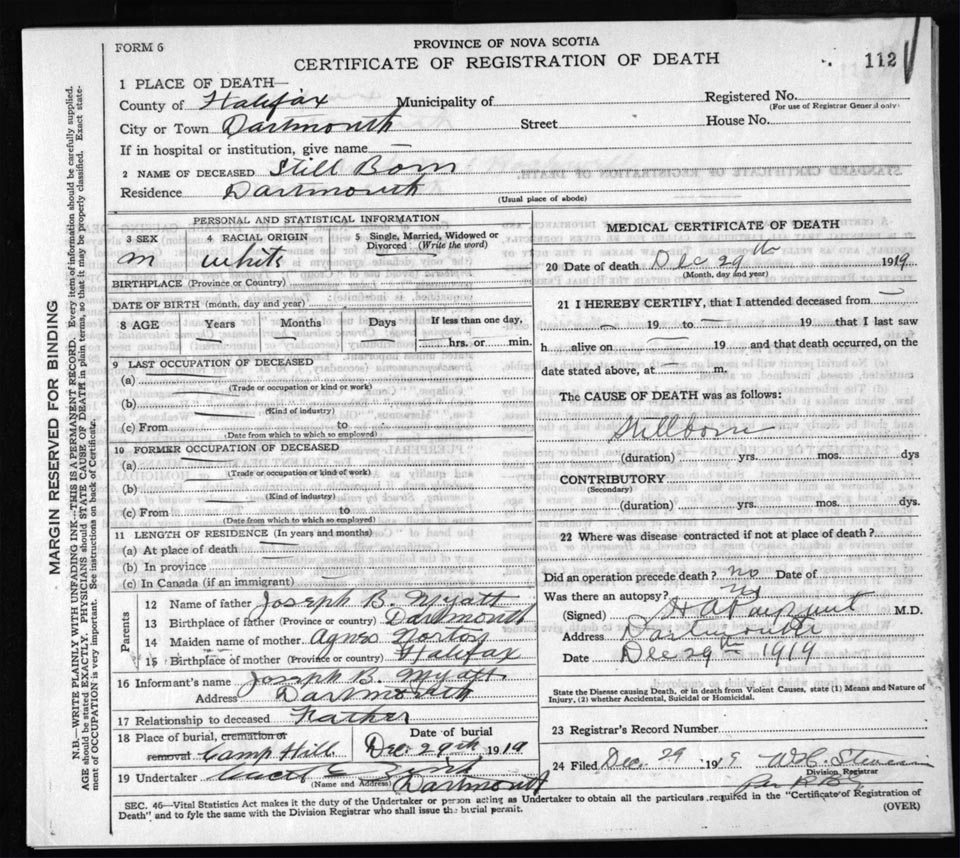 FORM 6
PROVINCE OF NOVA SCOTIA
CERTIFICATE OF REGISTRATION OF DEATH
112
1 PLACE OF DEATH—
County of Halifax Municipality of Registered No.
(For use of Registrar General only)
City or Town Dartmouth Street House No.
If in hospital or institution, give name —
2 NAME OF DECEASED Still Born
Residence Dartmouth
(Usual place of abode)
PERSONAL AND STATISTICAL INFORMATION
3 SEX 4 RACIAL ORIGIN 5 Single, Married, Widowed or Divorced (Write the word)
m white —
BIRTHPLACE (Province or Country)
DATE OF BIRTH (month, day and year)
8 AGE Years Months Days If less than one day,
hrs. or min.
9 LAST OCCUPATION OF DECEASED
(a)
(Trade or occupation or kind or work)
(b)
(Kind of industry)
(c) From to
(Date from which to which so employed)
10 FORMER OCCUPATION OF DECEASED
(a)
(Trade or occupation or kind of work)
(b)
(Kind of industry)
(c) From to
(Date from which to which so employed)
11 LENGTH OF RESIDENCE (In years and months)
(a) At place of death
(b) In province
(c) In Canada (if an immigrant)
Parents
12 Name of father Joseph B. Myatt
13 Birthplace of father (Province or country) Dartmouth
14 Maiden name of mother Agnes Norton
15 Birthplace of mother (Province or country) Halifax
16 Informant's name Joseph B. Myatt
Address Dartmouth
17 Relationship to deceased Father
18 Place of burial, cremation or removal Camp Hill Date of burial Dec 29th 1919
19 Undertaker
(Name and Address) Dartmouth
MEDICAL CERTIFICATE OF DEATH
20 Date of death Dec 29th 1919
(Month, day and year)
21 I HEREBY CERTIFY, that I attended deceased from —
— 19 to — 19 that I last saw
h alive on — 19 and that death occurred, on the
date stated above, at — m.
The CAUSE OF DEATH was as follows:
Stillborn
(duration) yrs. mos. dys
CONTRIBUTORY
(Secondary)
(duration) yrs. mos. dys.
22 Where was disease contracted if not at place of death?
Did an operation precede death? no Date of
Was there an autopsy? no
(Signed) M.D.
Address Dartmouth
Date Dec 29th 1919
State the Disease causing Death, or in death from Violent Causes, state (1) Means and Nature of
Injury, (2) whether Accidental, Suicidal or Homicidal.
23 Registrar's Record Number
24 Filed Dec. 29 1919
Division Registrar
SEC. 46—Vital Statistics Act makes it the duty of the Undertaker or person acting as Undertaker to obtain all the particulars required in the "Certificate of Registration of
Death" and to fyle the same with the Division Registrar who shall issue the burial permit. (OVER)
MARGIN RESERVED FOR BINDING
N.B.—WRITE PLAINLY WITH UNFADING INK—THIS IS A PERMANENT RECORD. Every item of information should be carefully supplied.
AGE should be stated EXACTLY. PHYSICIANS should STATE CAUSE OF DEATH in plain terms, so that it may be properly classified. Exact state-
ment of OCCUPATION is very important. See instructions on back of Certificate.